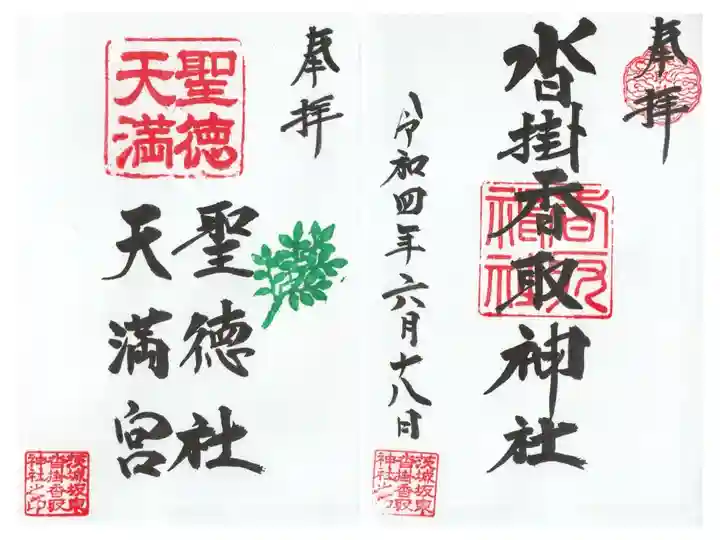 奉拝
沓掛香取神社
令和四年六月十八日
茨城坂東
沓掛香取
神社之印
奉拝
聖徳
天満
聖徳社
天満宮
茨城坂東
沓掛香取
神社之印